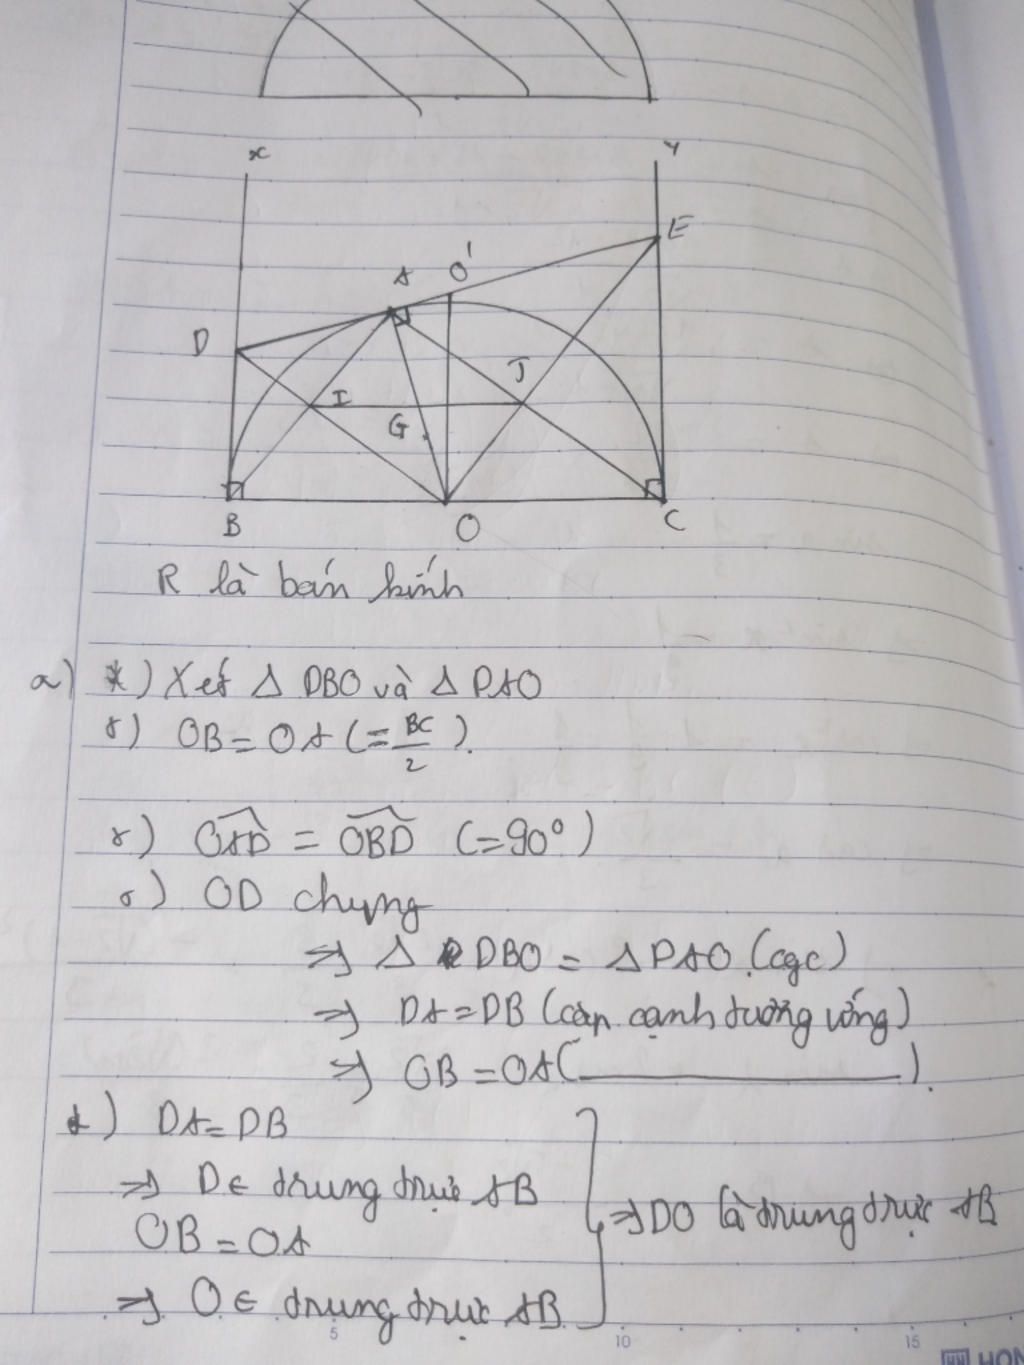 x
y
E
A
O'
D
I
J
G
B
O
C
R là bán kính
a) *) Xét Δ DBO và Δ DAO
+) OB = OA (= BC/2).
+) OAD = OBD (= 90°)
+) OD chung
⇒ Δ DBO = Δ DAO (cgc)
⇒ DA = DB (cặp cạnh tương ứng)
⇒ OB = OA (__________).
+) DA = DB
⇒ D ∈ trung trực AB
OB = OA
⇒ DO là trung trực AB
⇒ O ∈ trung trực AB
5
10
15